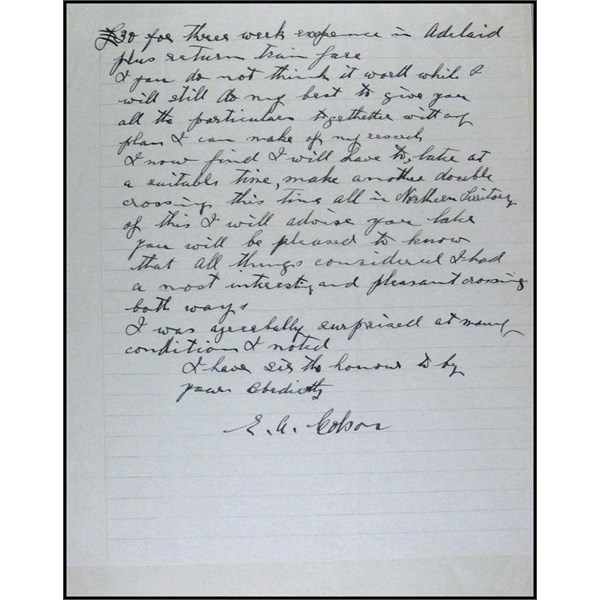 £30 for three week expence in Adelaid
plus return train fare
I you do not think it worth while I
will still do my best to give you
all the particulars togethther with any
plan I can make of my records
I now find I will have to, later at
a suitable time, make another double
crossing this time all in Northern Territory
of this I will advise you later
you will be pleased to know
that all things considered I had
a most interesting and pleasant crossing
both ways
I was agreeably surprised at many
condition I noted
I have sir the honour to by
yours obediently
E. A. Colson